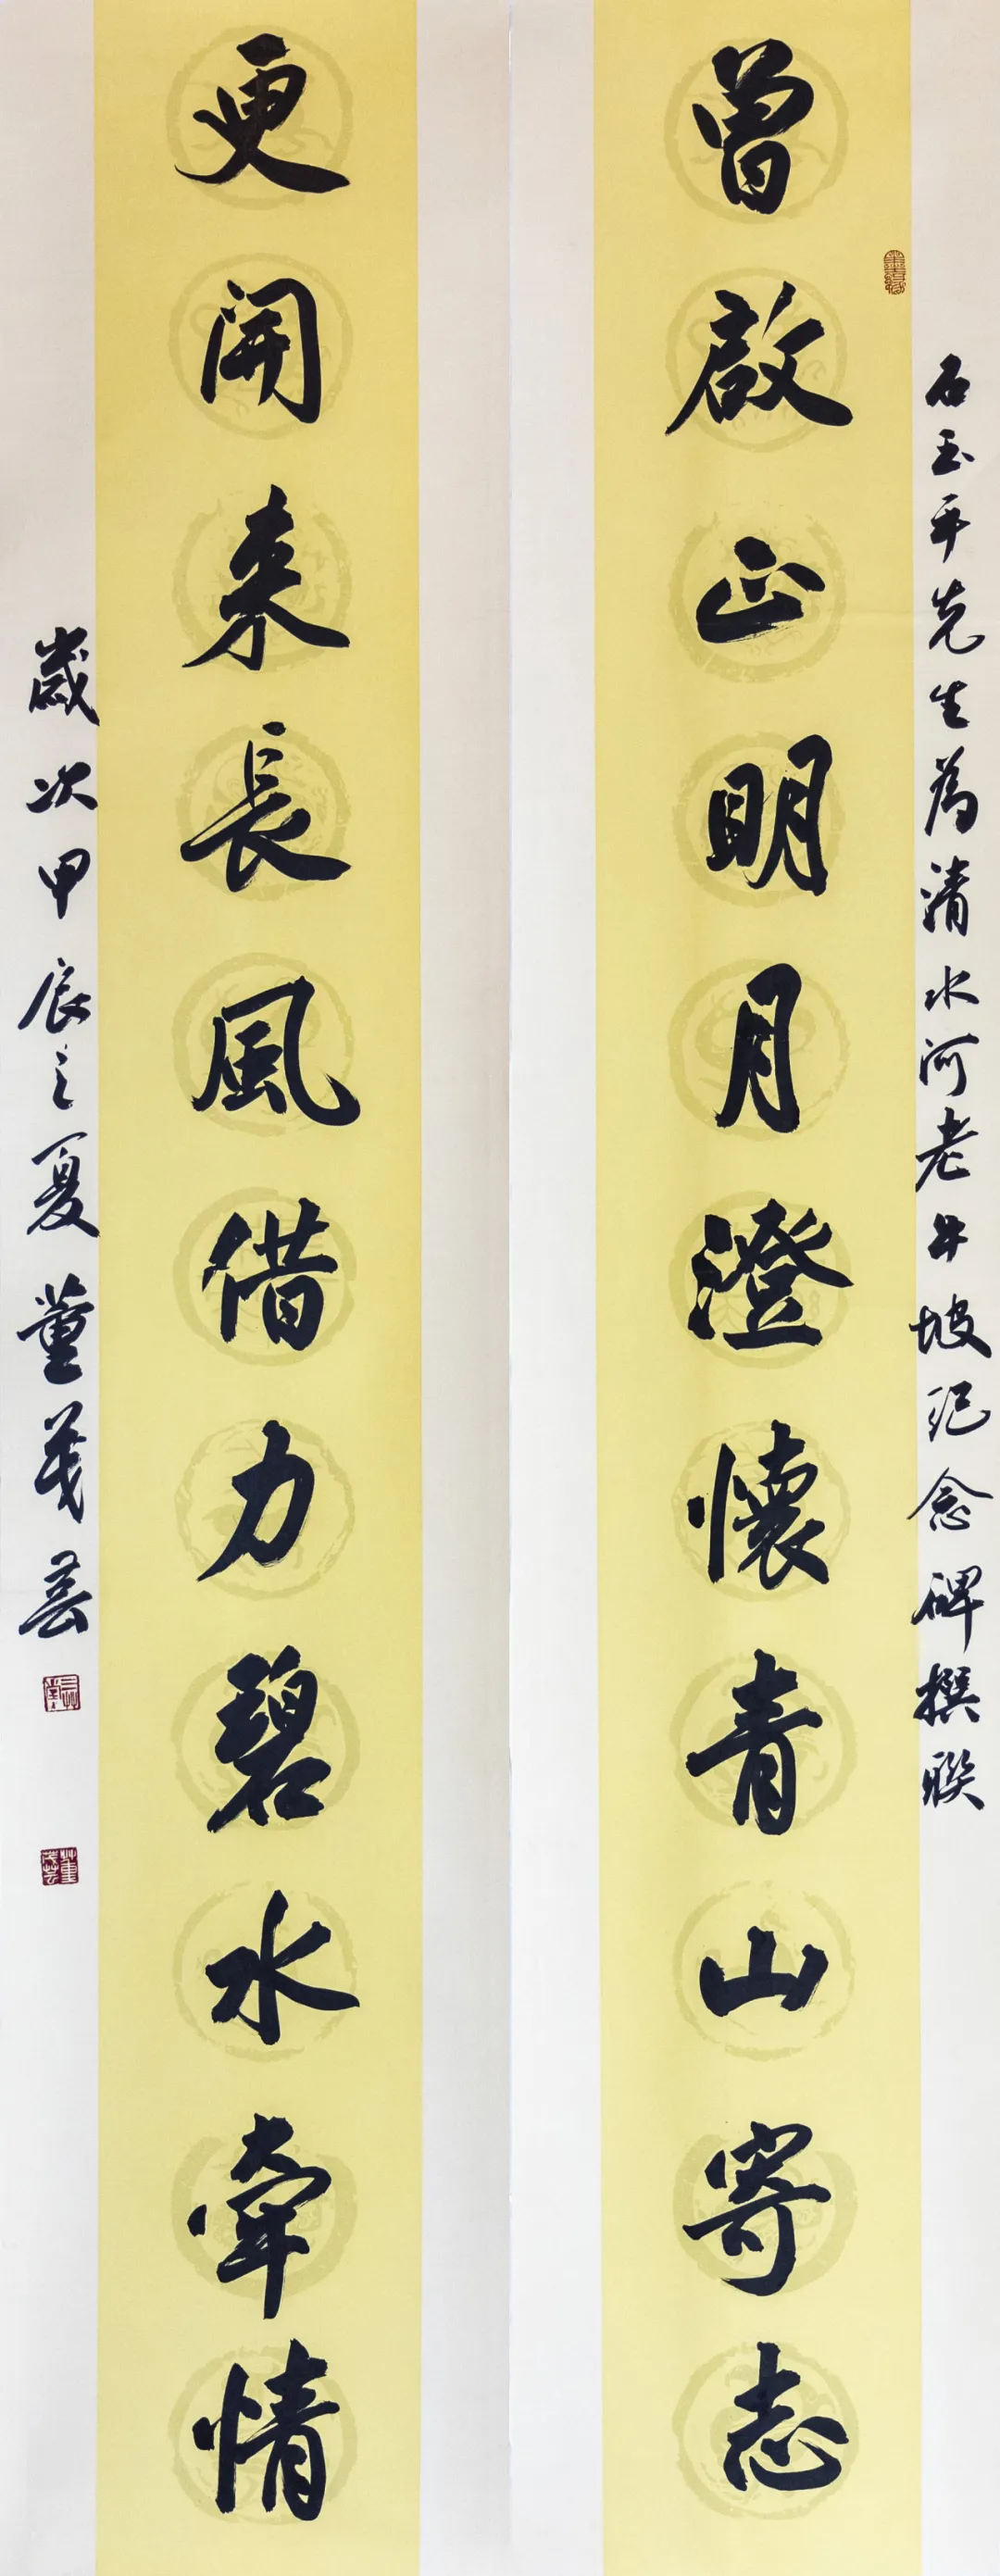 石玉平先生為清水河老牛坡纪念碑撰聯
曾啟正明月澄懷青山寄志
更開来長風借力碧水牽情
歲次甲辰之夏董茂芸
董茂芸